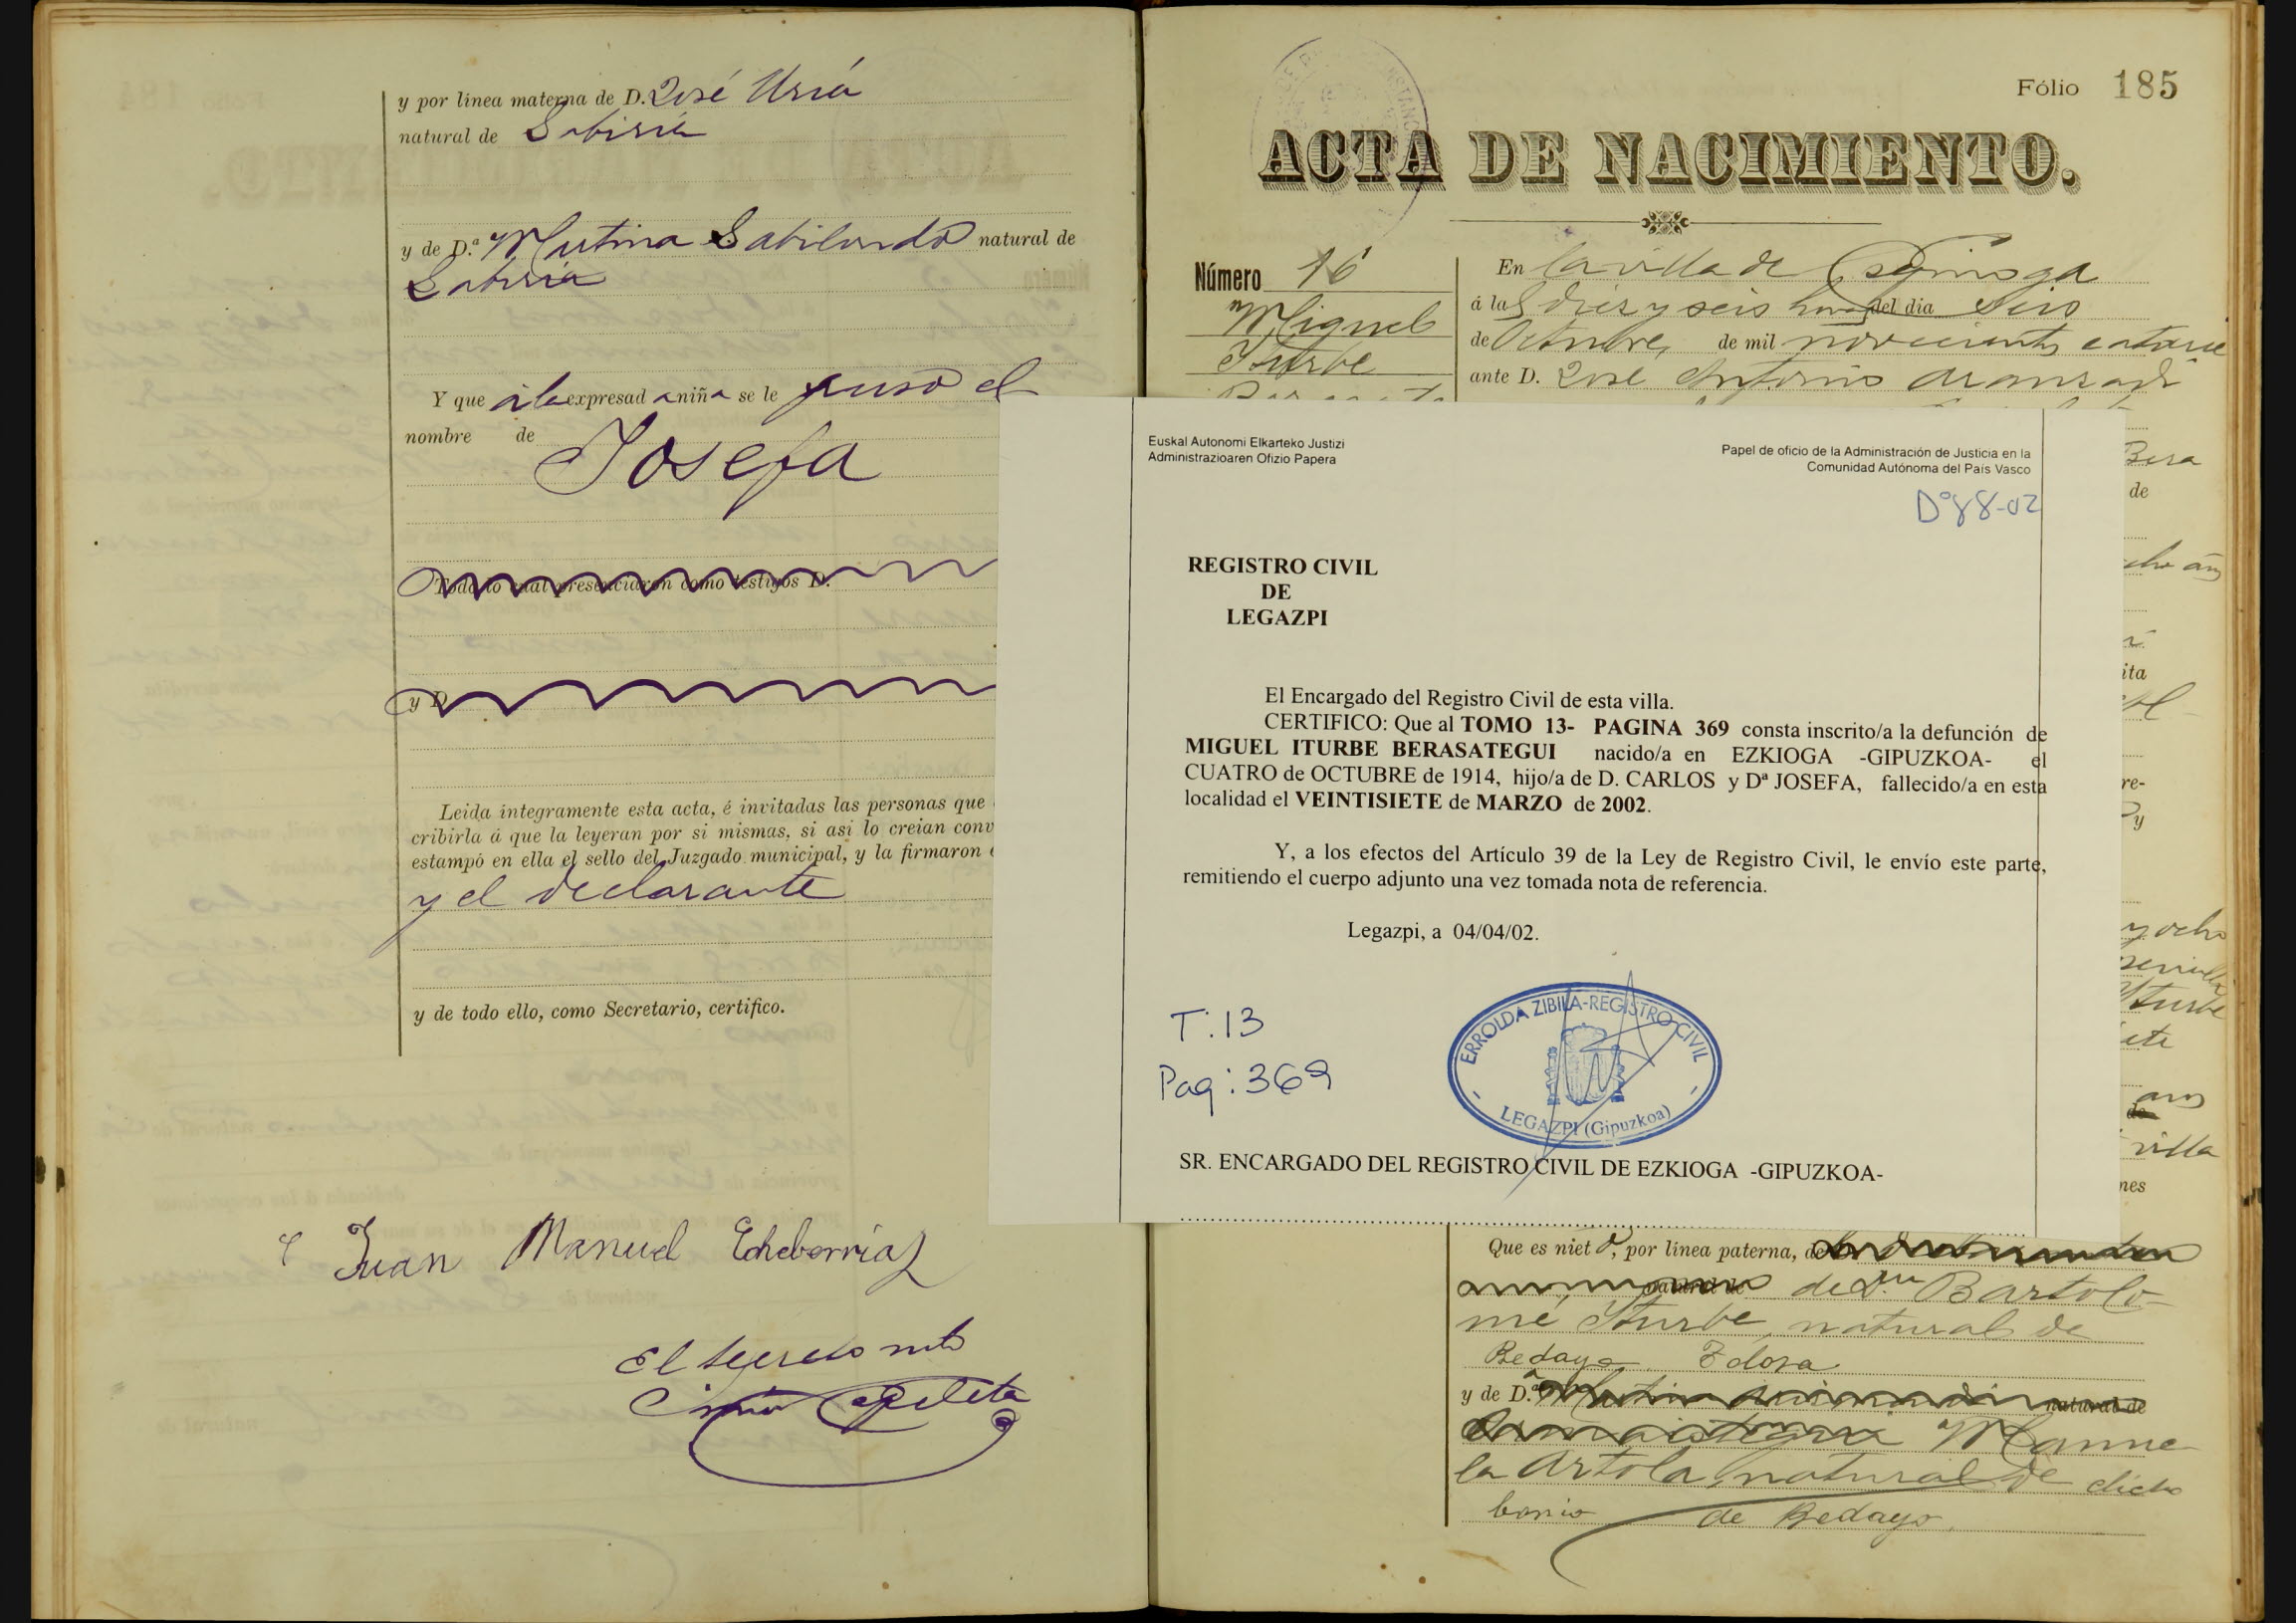 y por línea materna de D. José Uria
natural de Zabiria
y de D.ª Martina Zabilondo natural de
Zabiria
Y que á la expresad a niñ a se le puso el
nombre de
Josefa
Todo lo cual presenciaron como testigos D.
y D.
Leida íntegramente esta acta, é invitadas las personas que
cribirla á que la leyeran por si mismas, si así lo creían conv
estampó en ella el sello del Juzgado municipal, y la firmaron
y el declarante
y de todo ello, como Secretario, certifico.
Juan Manuel Echeberria
El Secreto
Fólio 185
ACTA DE NACIMIENTO.
Número 16
Miguel
Iturbe
En la villa de Ezquioga
á las diez y seis horas del día seis
de Octubre, de mil novecientos catorce
ante D. José Antonio Aranzadi
Bera
de
ita
re-
y
y ocho
Iturbe
ete
de
villa
nes
Euskal Autonomi Elkarteko Justizi
Administrazioaren Ofizio Papera
Papel de oficio de la Administración de Justicia en la
Comunidad Autónoma del País Vasco
Dº88-02
REGISTRO CIVIL
DE
LEGAZPI
El Encargado del Registro Civil de esta villa.
CERTIFICO: Que al TOMO 13- PAGINA 369 consta inscrito/a la defunción de
MIGUEL ITURBE BERASATEGUI nacido/a en EZKIOGA -GIPUZKOA- el
CUATRO de OCTUBRE de 1914, hijo/a de D. CARLOS y Dª JOSEFA, fallecido/a en esta
localidad el VEINTISIETE de MARZO de 2002.
Y, a los efectos del Artículo 39 de la Ley de Registro Civil, le envío este parte,
remitiendo el cuerpo adjunto una vez tomada nota de referencia.
Legazpi, a 04/04/02.
T:13
Pag:369
ERROLDA ZIBILA-REGISTRO CIVIL
- LEGAZPI (Gipuzkoa) -
SR. ENCARGADO DEL REGISTRO CIVIL DE EZKIOGA -GIPUZKOA-
Que es niet o, por línea paterna, de
natural de de Dn. Bartolo-
mé Iturbe natural de
Bedayo Tolosa
y de D.ª natural de
Manue
la Artola, natural de dicho
barrio de Bedayo.